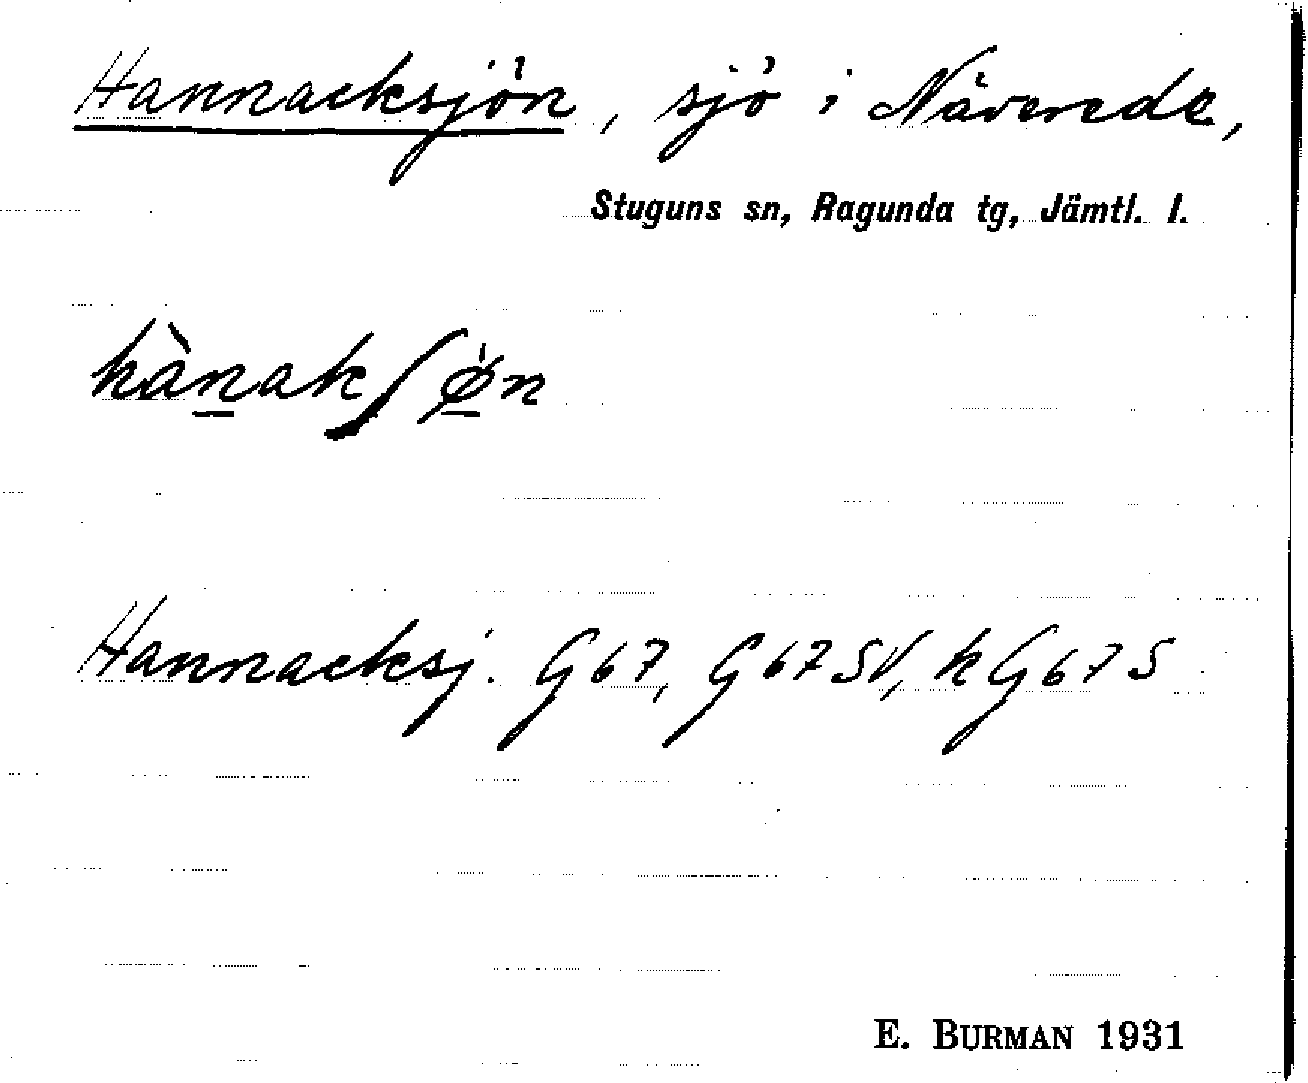 Hannacksjön, sjö i Näverede,
Stuguns sn, Ragunda tg, Jämtl. l.
hànakʃø̀n
Hannacksj. G67, G67SV, kG67S
E. BURMAN 1931